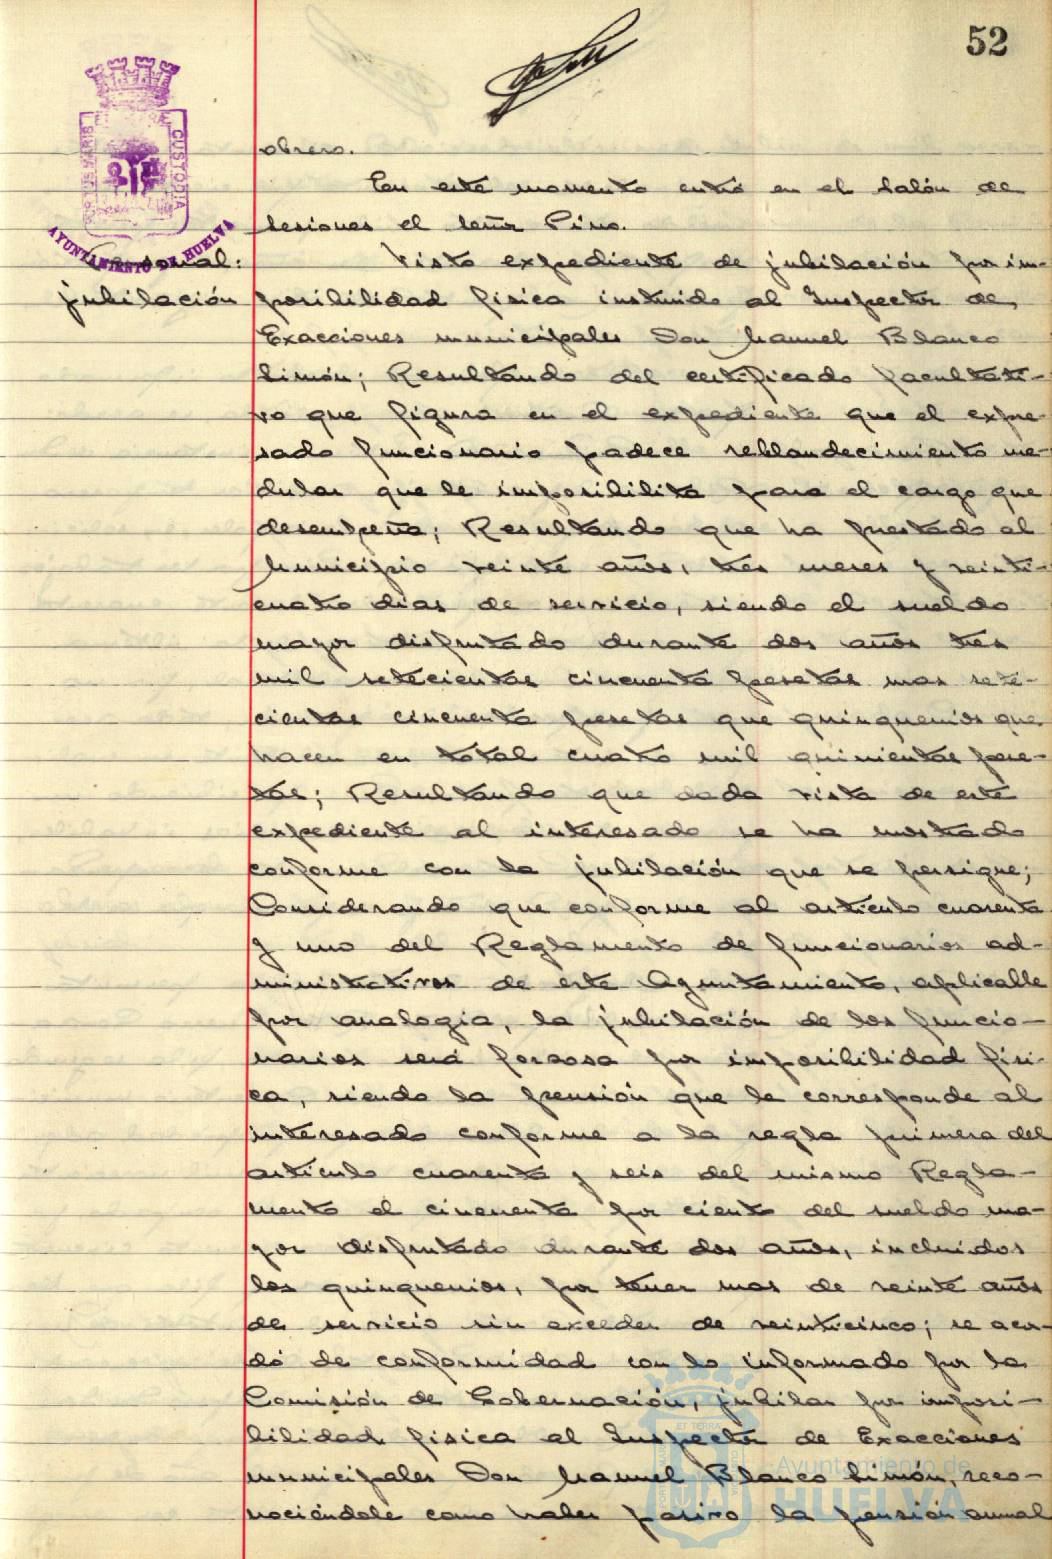 52
obrero.
En este momento entró en el Salón de
Sesiones el señor Pino.
AYUNTAMIENTO DE HUELVA
CUSTODIA
Personal:
jubilación
Visto expediente de jubilación por im-
posibilidad física instruido al Inspector de
Exacciones municipales Don Manuel Blanco
Limón; Resultando del certificado facultati-
vo que figura en el expediente que el expre-
sado funcionario padece reblandecimiento me-
dular que le imposibilita para el cargo que
desempeña; Resultando que ha prestado al
Municipio veinte años, tres meses y veinti-
cuatro dias de servicio, siendo el sueldo
mayor disfrutado durante dos años tres
mil setecientas cincuenta pesetas mas sete-
cientas cincuenta pesetas que quinquenios que
hacen en total cuatro mil quinientas pese-
tas; Resultando que dada vista de este
expediente al interesado se ha mostrado
conforme con la jubilación que se persigue;
Considerando que conforme al artículo cuarenta
y uno del Reglamento de funcionarios ad-
ministrativos de este Ayuntamiento, aplicable
por analogía, la jubilación de los funcio-
narios será forzosa por imposibilidad físi-
ca, siendo la pensión que le corresponde al
interesado conforme a la regla primera del
artículo cuarenta y seis del mismo Regla-
mento el cincuenta por ciento del sueldo ma-
yor disfrutado durante dos años, incluidos
los quinquenios, por tener mas de veinte años
de servicio sin exceder de veinticinco; se acor-
dó de conformidad con lo informado por la
Comisión de Gobernación, jubilar por imposi-
bilidad física al Inspector de Exacciones
municipales Don Manuel Blanco Limón, reco-
nociéndole como haber pasivo la pensión anual
Ayuntamiento de
HUELVA